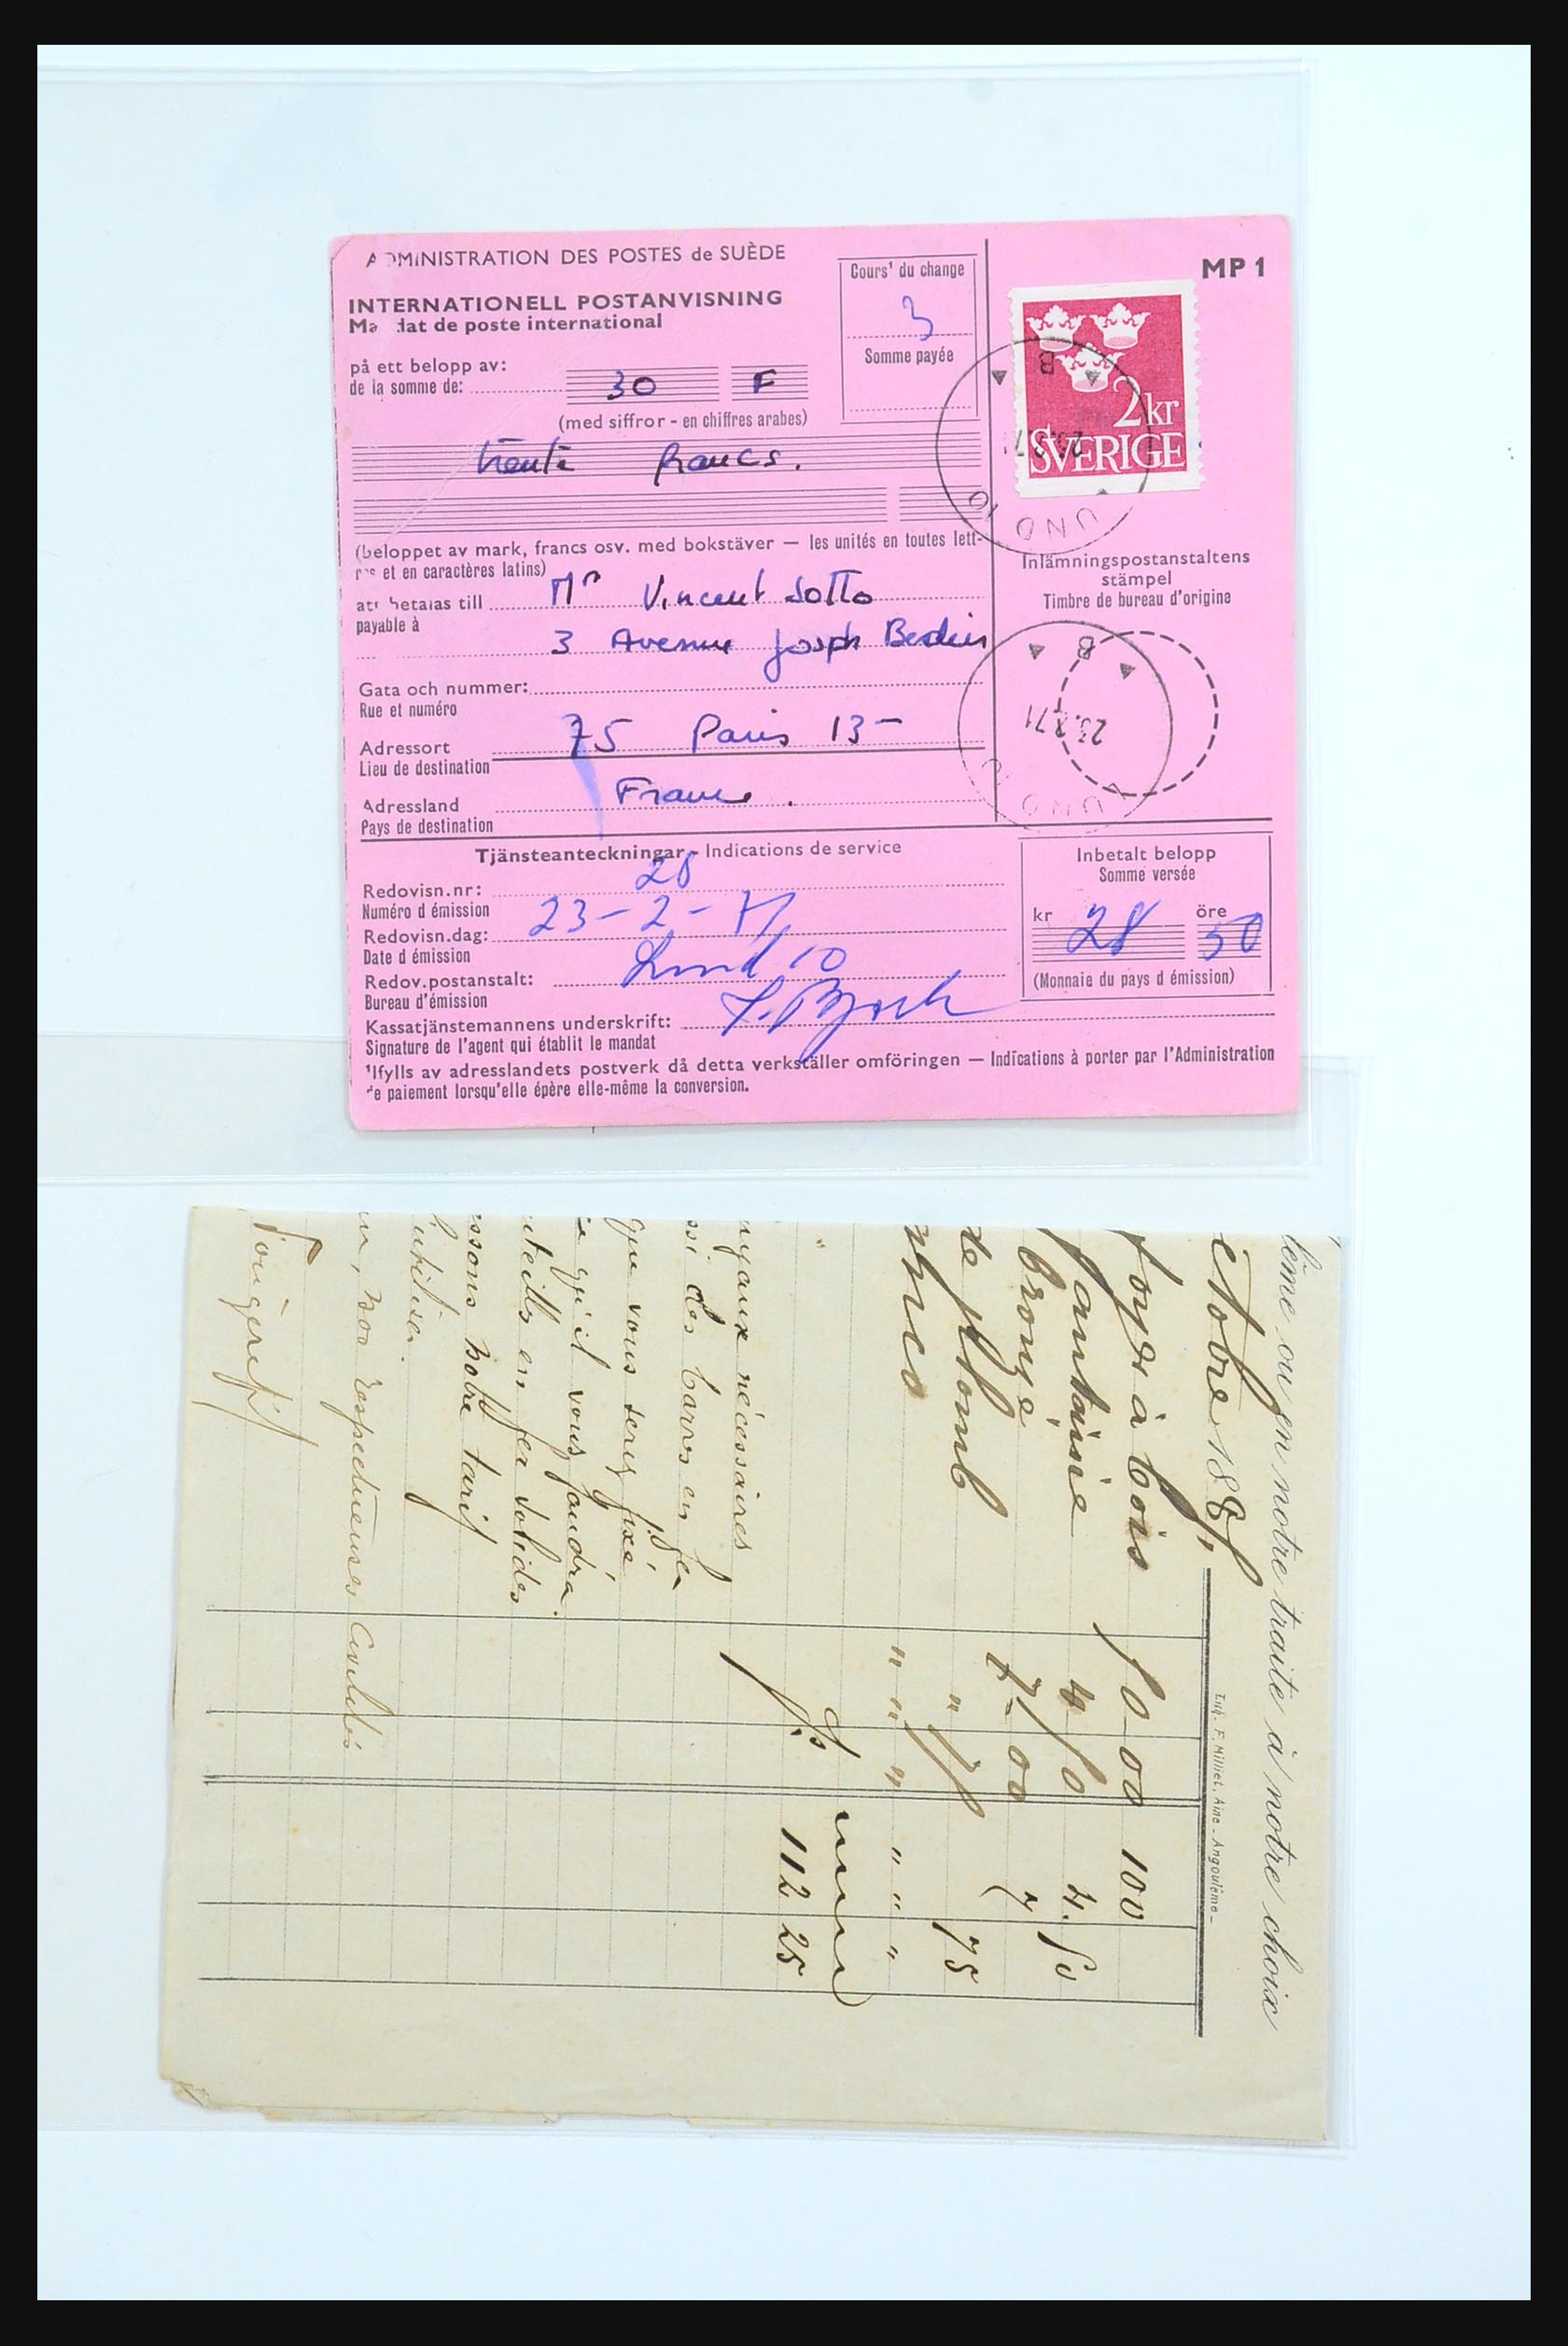 ADMINISTRATION DES POSTES de SUÈDE
INTERNATIONELL POSTANVISNING
Ma dat de poste international
Cours¹ du change
3
Somme payée
MP 1
2kr
SVERIGE
på ett belopp av:
de la somme de:
30 F
(med siffror - en chiffres arabes)
trente francs.
(beloppet av mark, francs osv. med bokstäver — les unités en toutes lett-
res et en caractères latins)
att betalas till
payable à
Mr Vincent Sotto
3 Avenue Joseph
Gata och nummer:
Rue et numéro
Adressort
Lieu de destination
75 Paris 13-
Adressland
Pays de destination
France.
Inlämningspostanstaltens
stämpel
Timbre de bureau d'origine
B
UND 10
B
23.2.71
UND
Tjänsteanteckningar - Indications de service
Redovisn.nr:
Numéro d émission
28
Redovisn.dag:
Date d émission
23-2-71
Redov.postanstalt:
Bureau d'émission
Lund 10
Kassatjänstemannens underskrift:
Signature de l'agent qui établit le mandat
Inbetalt belopp
Somme versée
kr 28 öre 50
(Monnaie du pays d émission)
¹Ifylls av adresslandets postverk då detta verkställer omföringen — Indications à porter par l'Administration
de paiement lorsqu'elle épère elle-même la conversion.
lême ou en notre traite à notre choix
Lith. F. Milliet, Aîné - Angoulême -
ctobre 188
à bois 100
fontaine 4 50 4. 50
bronze 7 00 7
de plomb " 75 75
" " " " " "
fs 112 25
uyaux nécessaires
ssi des barres en fer
que vous serez fixé
e qu'il vous faudra.
uteilles en fer solides
ssons notre tarif
utilise.
nos respectueuses civilités
Fougeret